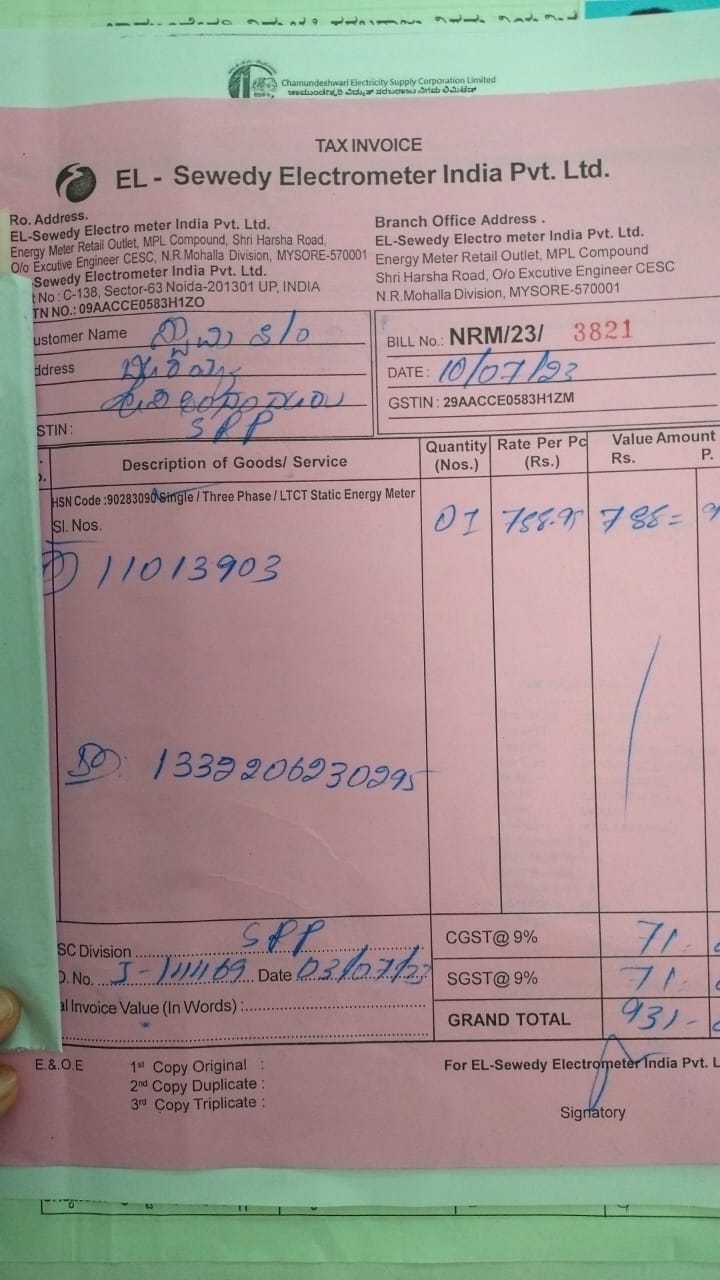 Chamundeshwari Electricity Supply Corporation Limited
ಚಾಮುಂಡೇಶ್ವರಿ ವಿದ್ಯುತ್ ಸರಬರಾಜು ನಿಗಮ ಲಿಮಿಟೆಡ್
TAX INVOICE
EL - Sewedy Electrometer India Pvt. Ltd.
Ro. Address.
EL-Sewedy Electro meter India Pvt. Ltd.
Energy Meter Retail Outlet, MPL Compound, Shri Harsha Road,
O/o Excutive Engineer CESC, N.R.Mohalla Division, MYSORE-570001
Sewedy Electrometer India Pvt. Ltd.
t No : C-138, Sector-63 Noida-201301 UP, INDIA
TN NO.: 09AACCE0583H1ZO
Branch Office Address .
EL-Sewedy Electro meter India Pvt. Ltd.
Energy Meter Retail Outlet, MPL Compound
Shri Harsha Road, O/o Excutive Engineer CESC
N.R.Mohalla Division, MYSORE-570001
ustomer Name S/o
ddress
STIN : SRP
BILL No.: NRM/23/ 3821
DATE : 10/07/23
GSTIN : 29AACCE0583H1ZM
Description of Goods/ Service Quantity (Nos.) Rate Per Pc (Rs.) Value Amount Rs. P.
HSN Code :90283090 Single / Three Phase / LTCT Static Energy Meter
Sl. Nos. 01 788.95 788=
1) 11013903
1332206230295
SC Division SRP CGST@ 9% 71.
No. Date 03/07/23 SGST@ 9% 71.
al Invoice Value (In Words) : GRAND TOTAL 931-
E.&.O.E 1st Copy Original : For EL-Sewedy Electrometer India Pvt. L
2nd Copy Duplicate :
3rd Copy Triplicate :
Signatory